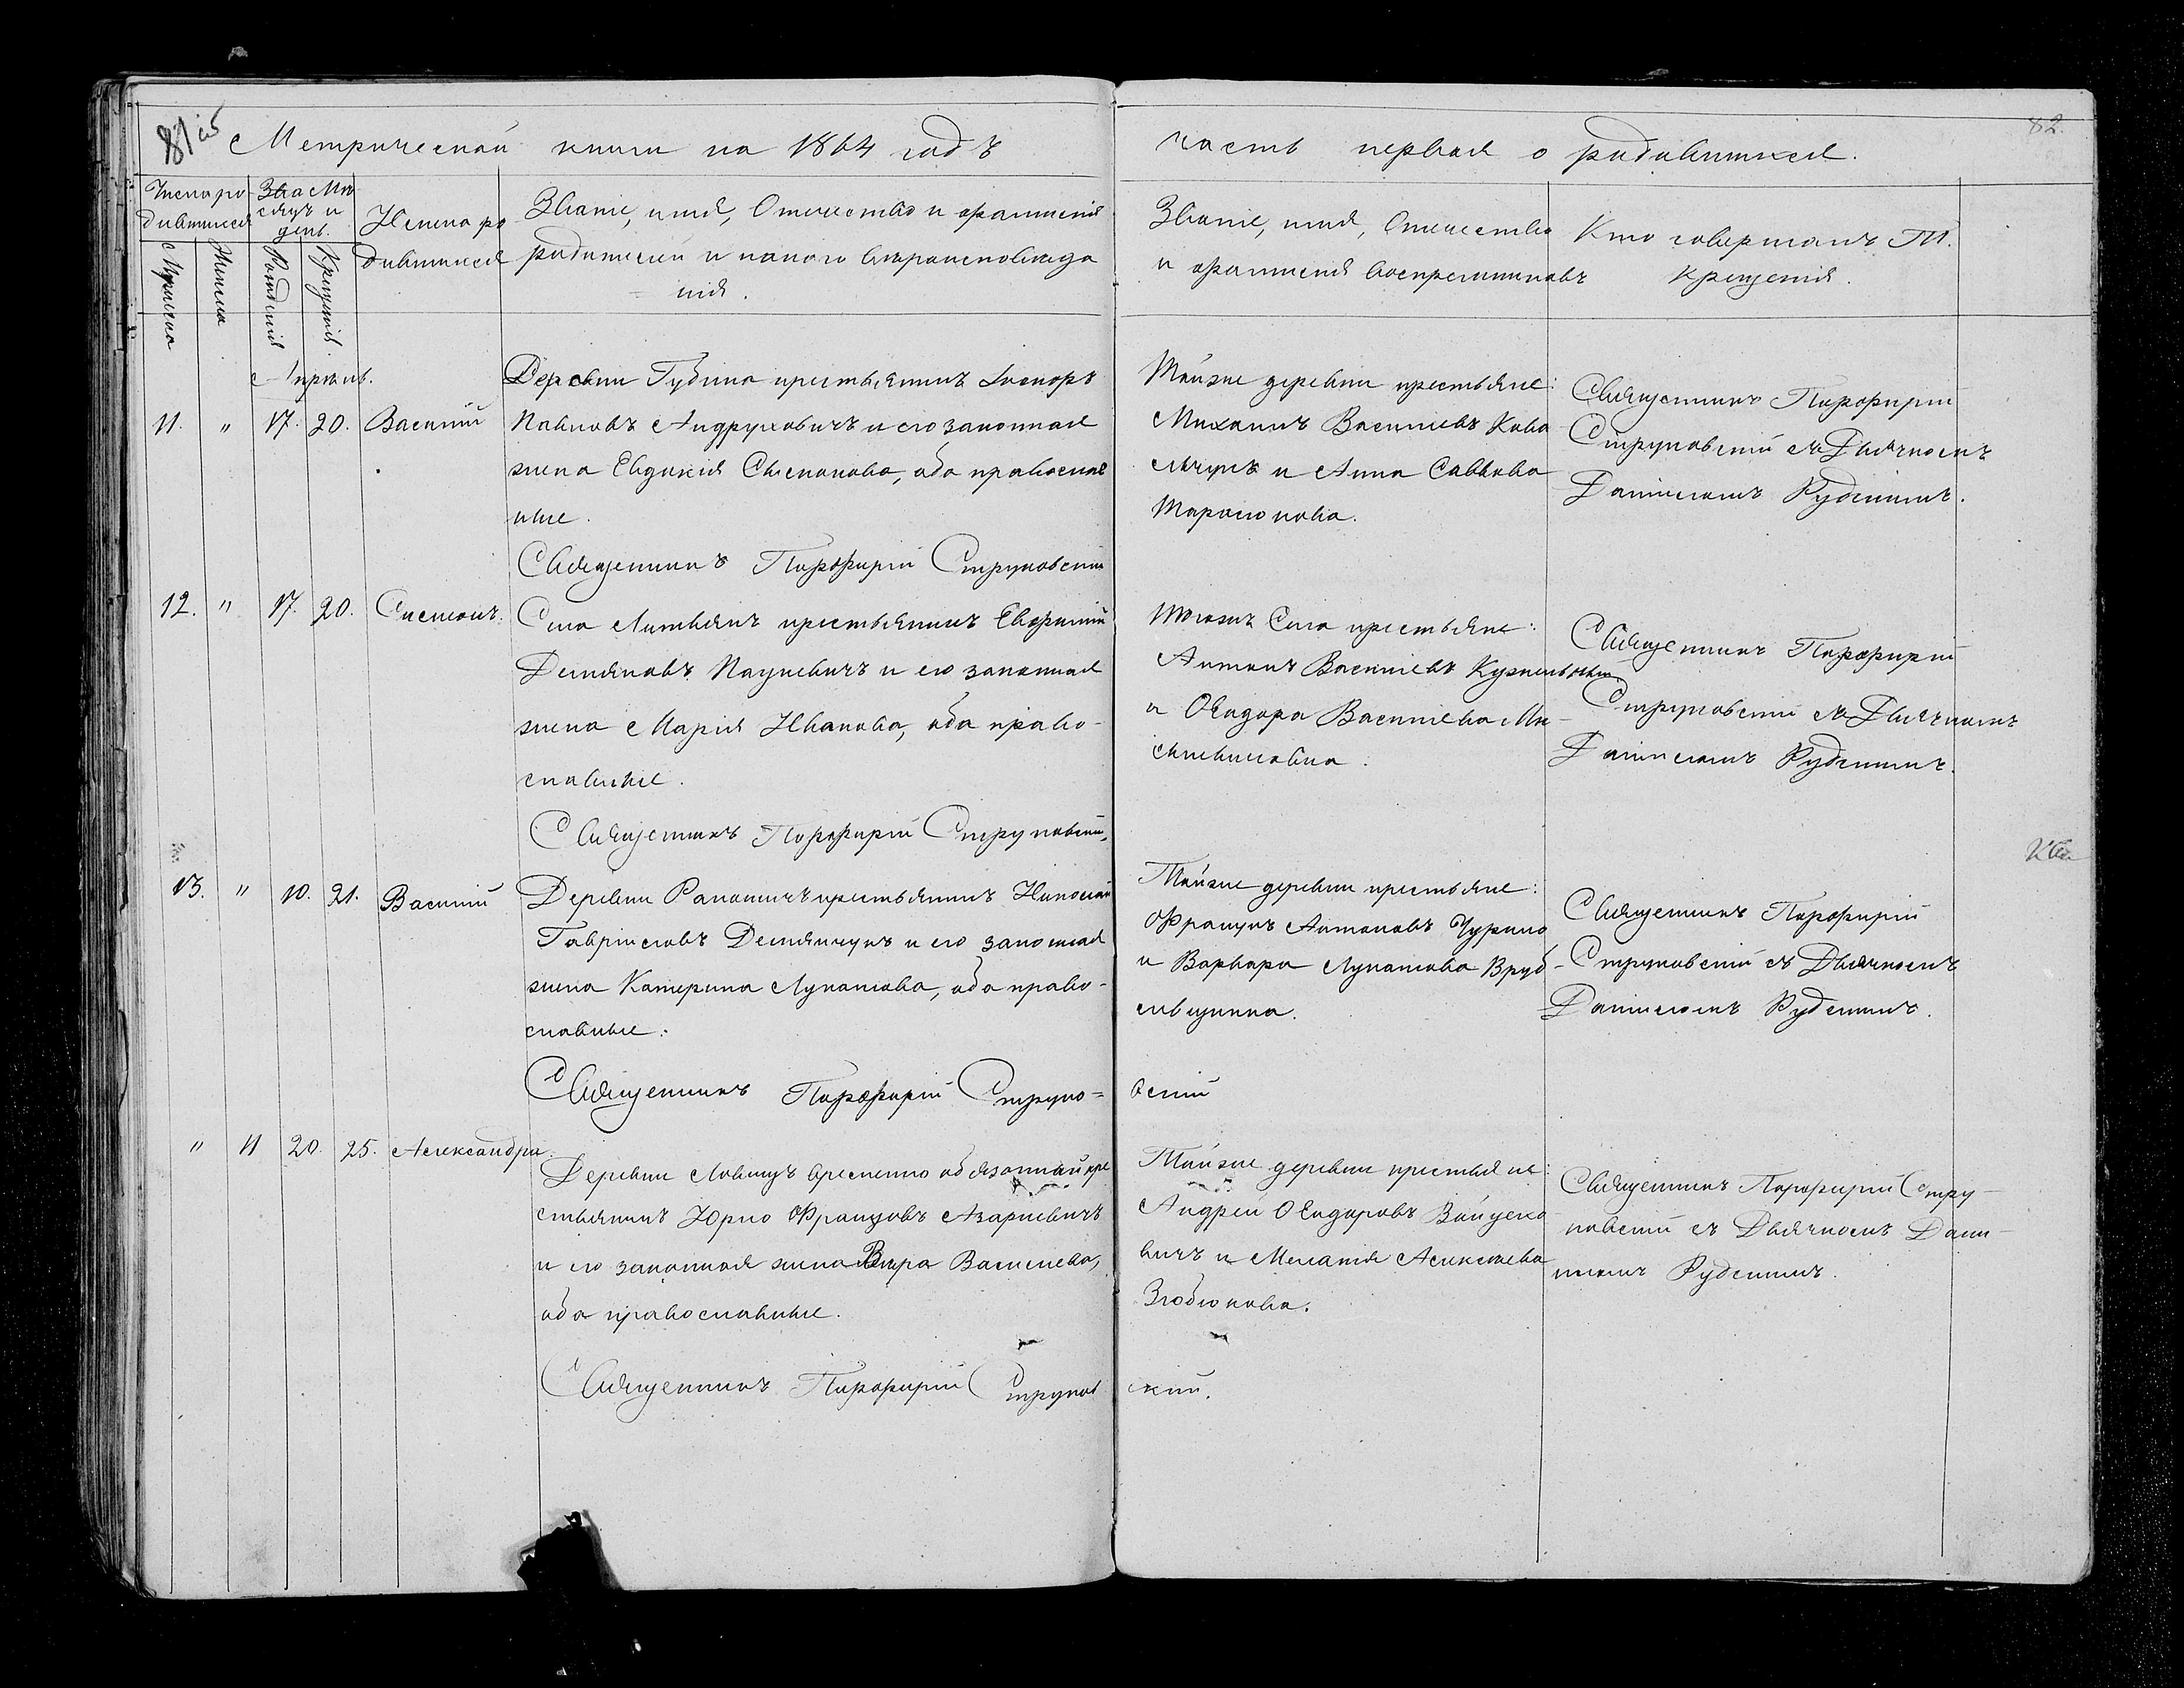 Метрической книги на 1864 годъ
часть первая о родившихся.
82.
Число ро-
дившихся
Мужска
Женска
Мѣ-
сяцъ и
день.
Рожденія
Крещенія.
Имена ро-
дившихся
Званіе, имя, Отечество и фамилія
родителей и какого вѣроисповѣда
нія.
Званіе, имя, Отечество
и фамилія воспреемниковъ
Кто совершалъ Т.
крещенія.
Апрѣль.
11. " 17. 20. Василій
Деревни Губина крестьянинъ
Павловъ Андруховичъ и его законная
жена Евдокія Степанова, оба православ
ные.
Священникъ Порфирій Струковскій
Тойже деревни крестьяне:
Михаилъ Васильевъ Кова
льчукъ и Анна Саввова
Тарасюкова.
Священникъ Порфирій
Струковскій съ Дьячкомъ
Даніиломъ Рудскимъ.
12. " 17. 20. Симеонъ.
Села крестьянинъ Евфимій
Демяновъ Пацкевичъ и его законная
жена Марія Иванова, оба право-
славные.
Священникъ Порфирій Струковскій,
Тогожъ Села крестьяне:
Антонъ Васильевъ
и Ѳеодора Васильева
Священникъ Порфирій
Струковскій съ Дьячкомъ
Даніиломъ Рудскимъ.
13. " 10. 21. Василій
Деревни крестьянинъ Николай
Гавріиловъ Демянчукъ и его законная
жена Катерина Лукашова, оба право-
славные.
Священникъ Порфирій Струко=
вскій
Тойже деревни крестьяне:
Францъ Антоновъ Чурило
и Варвара Лукашова Вруб-
левщика.
Священникъ Порфирій
Струковскій съ Дьячкомъ
Даніиломъ Рудскимъ.
" 11 20. 25. Александра.
Деревни Ловищъ временно обязанный кре
стьянинъ Юрко Францовъ Азаркевичъ
и его законная жена Вѣра Васильева,
оба православные.
Священникъ Порфирій Струков
скій.
Тойже деревни крестьяне:
Андрей Ѳеодоровъ Войцехо
вичъ и Меланія Алексѣева
Злобюкова.
Священникъ Порфирій Стру-
ковскій съ Дьячкомъ Дані-
иломъ Рудскимъ.